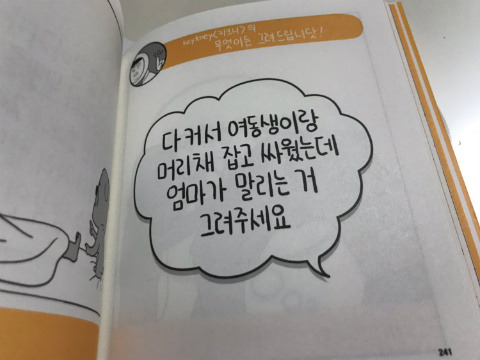 keykney<키크니>의
무엇이든 그려드립니닷!
다 커서 여동생이랑
머리채 잡고 싸웠는데
엄마가 말리는 거
그려주세요
241